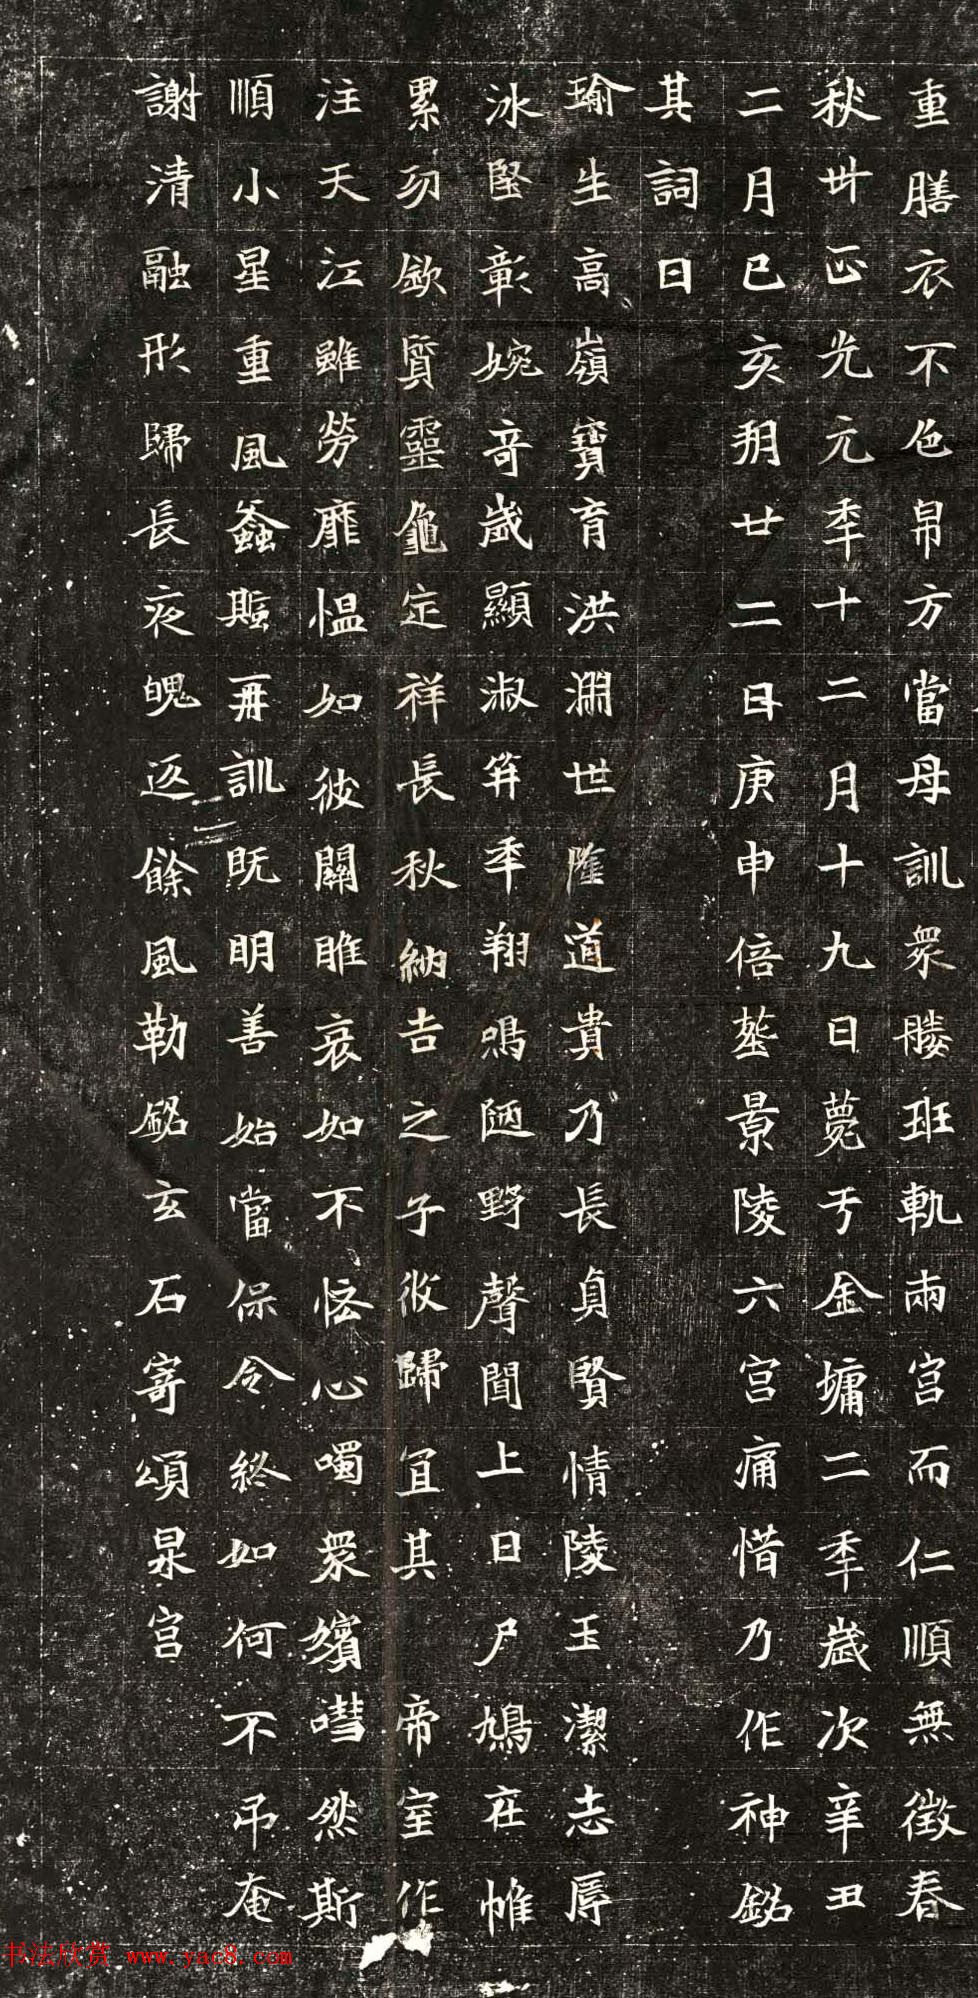 重膳衣不色帛方當母訓衆媵班軌兩宫而仁順無徵春
秋卅正光元季十二月十九日薨于金墉二季歲次辛丑
二月己亥朔廿二日庚申倍塟景陵六宫痛惜乃作神銘
其詞曰
瑜生高嶺寶育洪淵世隆道貴乃長貞賢情陵玉潔志辱
冰堅彰婉奇歲顯淑笄年翔鳴陋野聲聞上日尸鳩在帷
累功欽質靈龜定祥長秋納吉之子攸歸宜其帝室作
注天江雖勞靡愠如彼關雎哀如不恡心噣衆嬪嘒然斯
順小星重風螽斯再訓既明善始當保令終如何不吊奄
謝清融形歸長夜魄返餘風勒銘玄石寄頌泉宫
书法欣赏 www.yac8.com